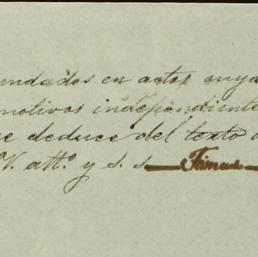 undados en actos cuya
motivos independiente
se deduce del texto
V. att.º y s. s Firmado